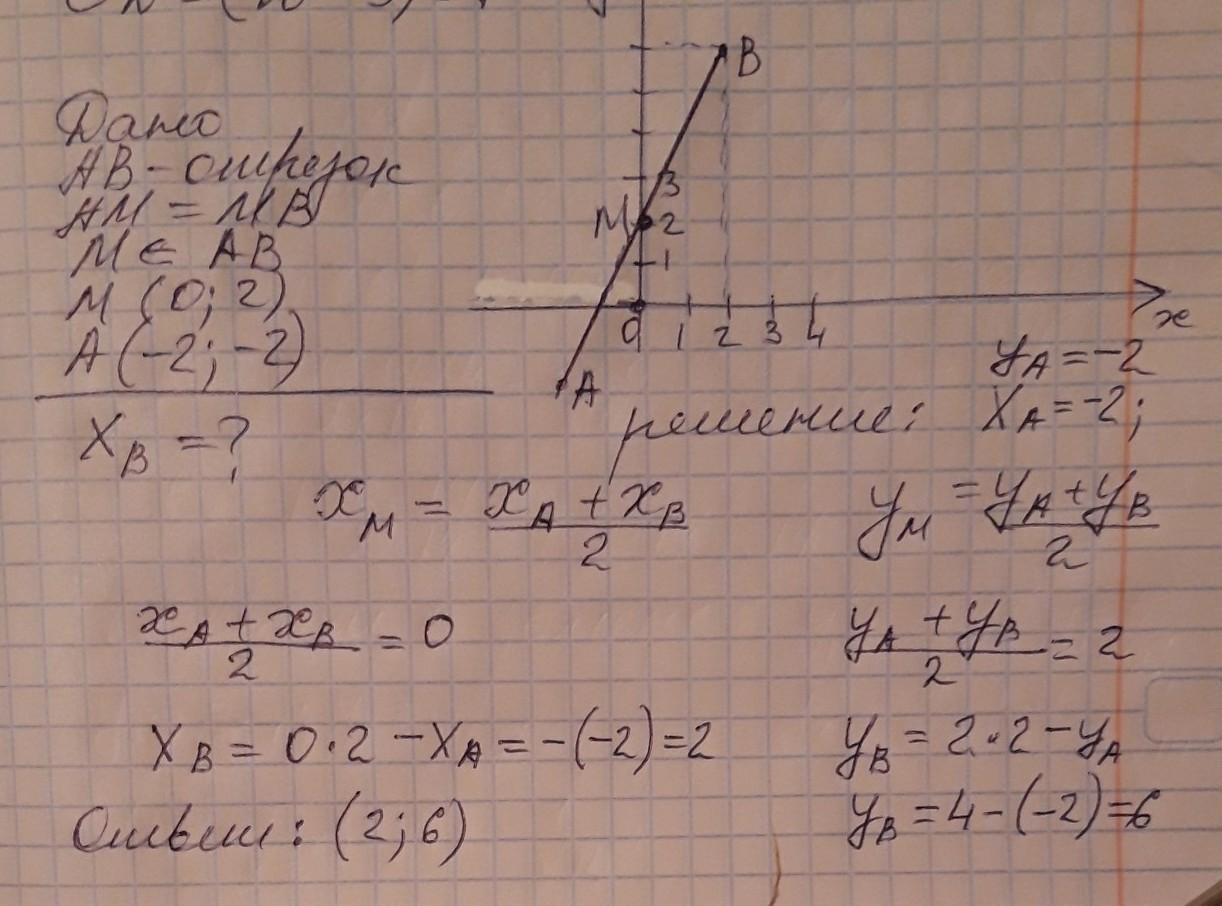 Дано
AB - отрезок
AM = MB
M ∈ AB
M (0; 2)
A (-2; -2)
X_B = ?
B
3
M 2
1
0 1 2 3 4
x
A
y_A = -2
решение: X_A = -2;
x_M = (x_A + x_B)/2
y_M = (y_A + y_B)/2
(x_A + x_B)/2 = 0
(y_A + y_B)/2 = 2
X_B = 0·2 - X_A = -(-2) = 2
y_B = 2·2 - y_A
y_B = 4 - (-2) = 6
Ответ: (2; 6)